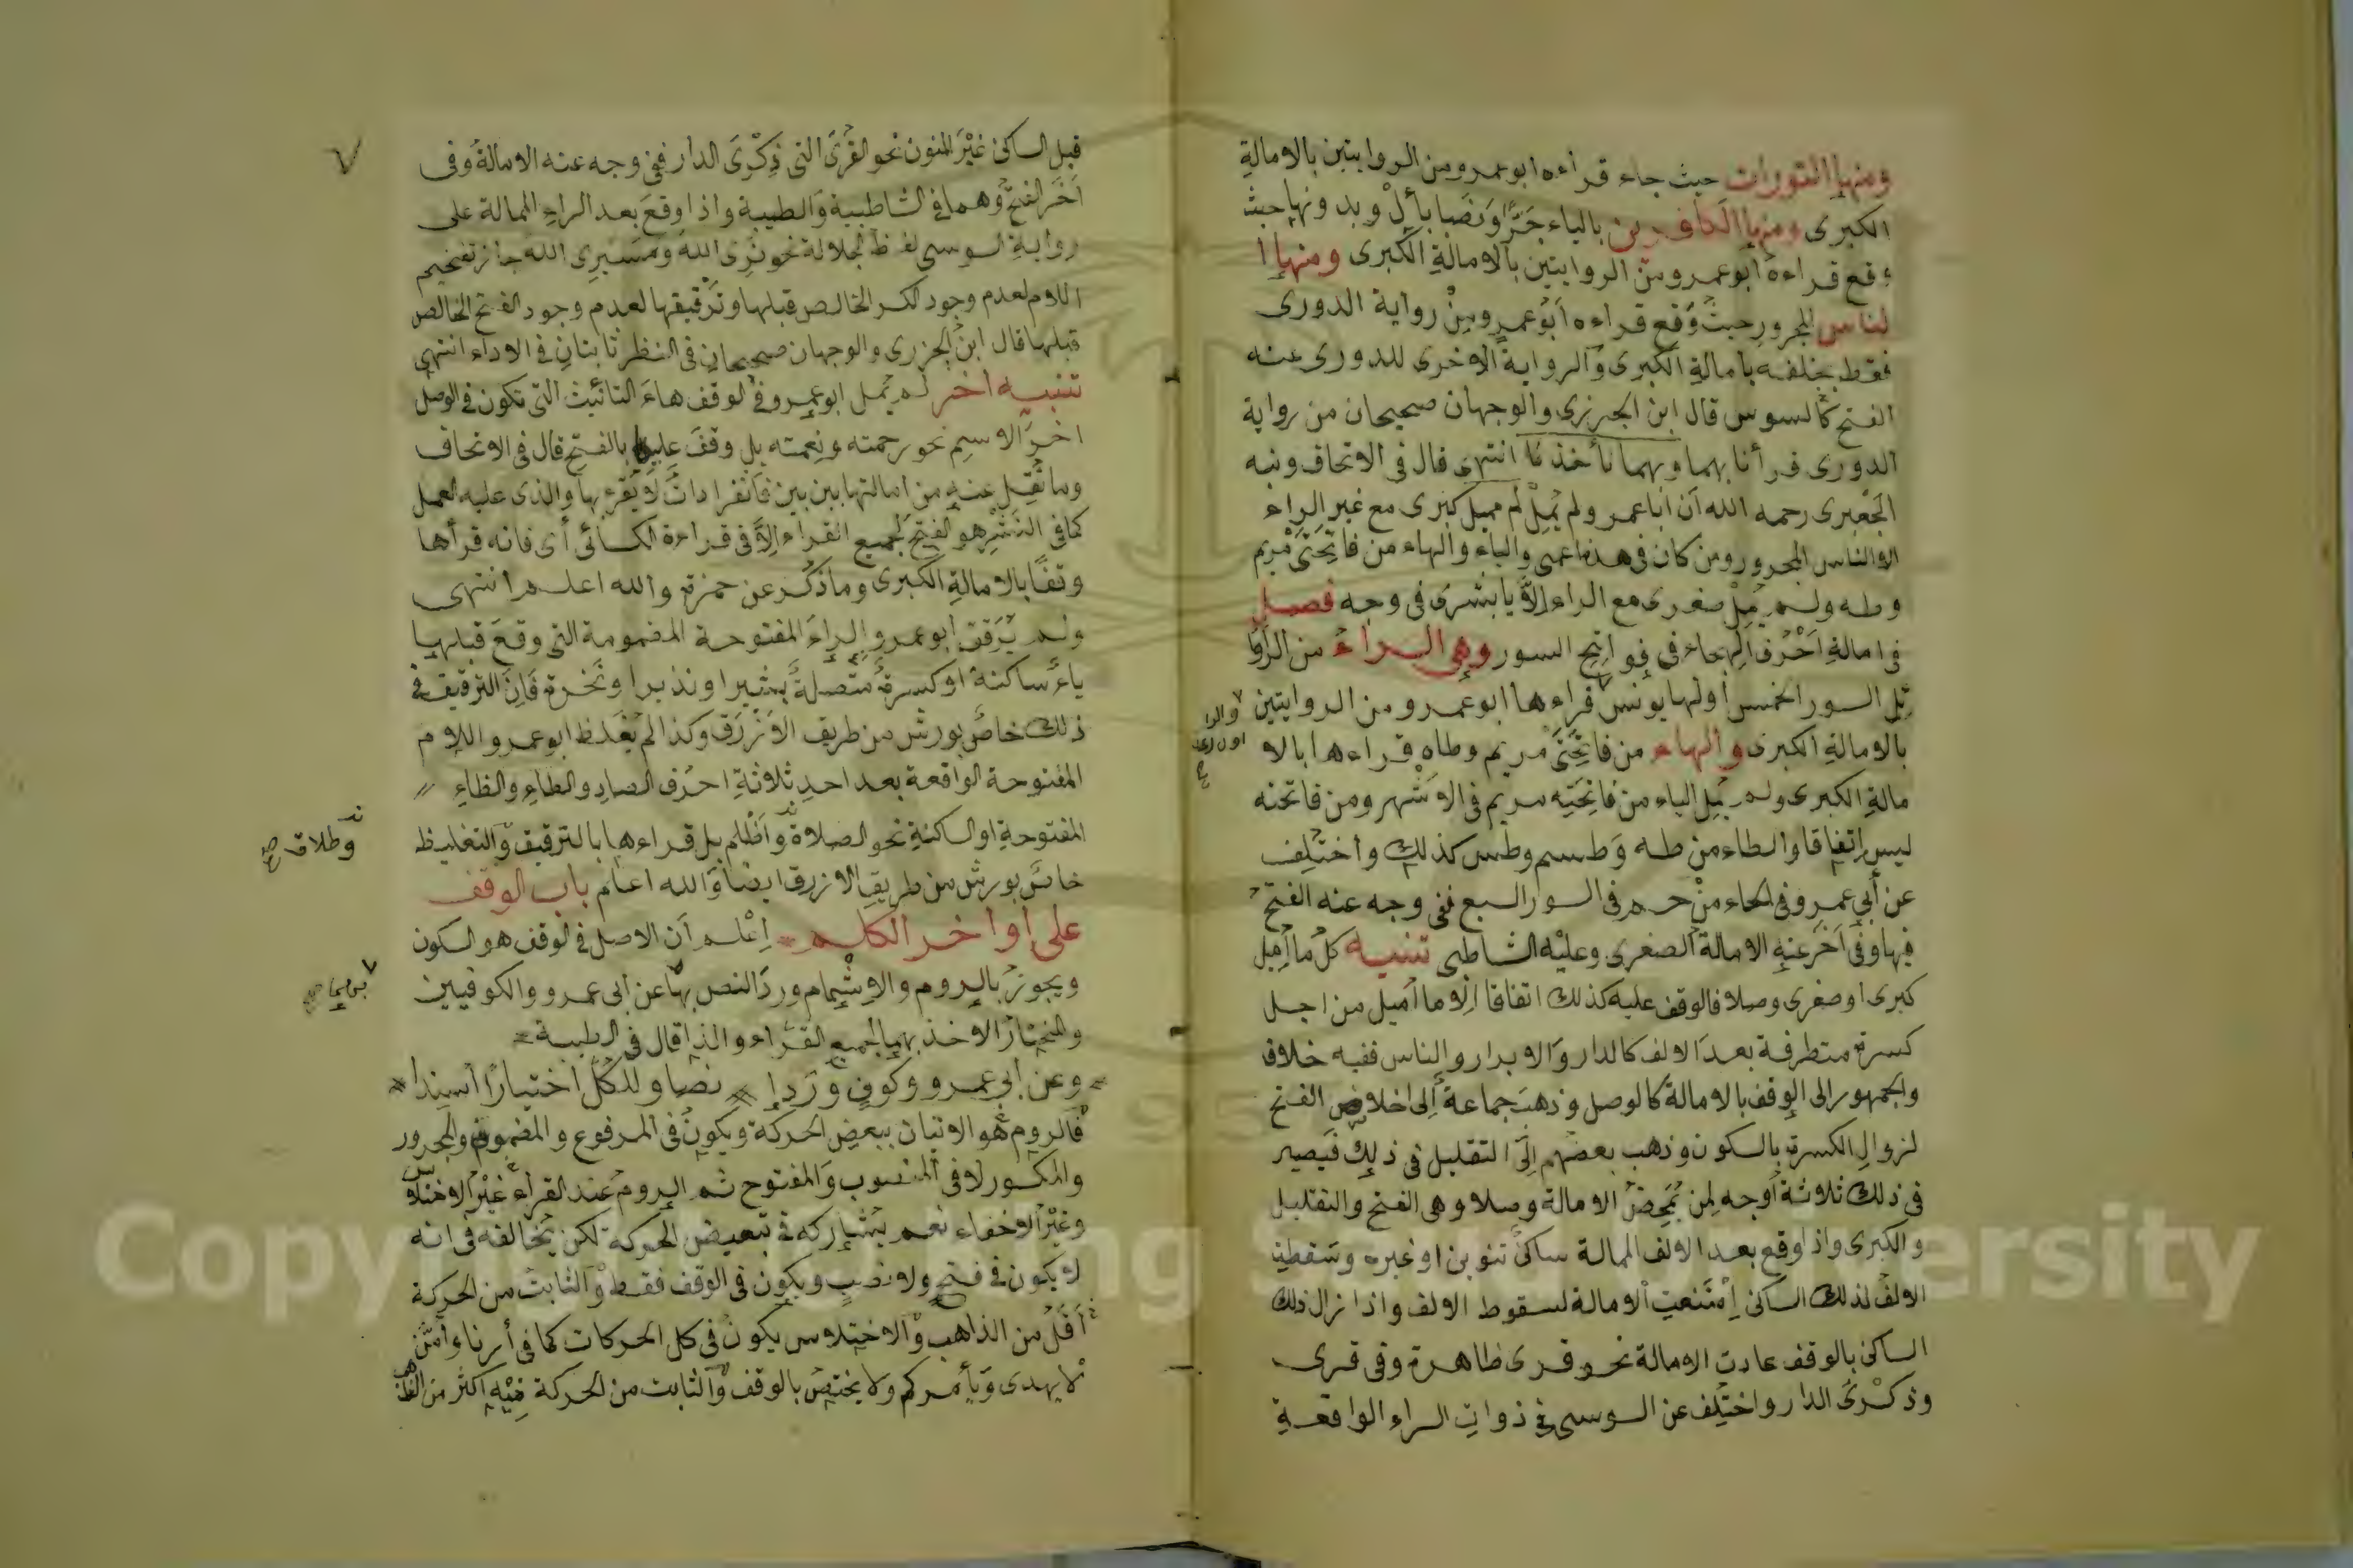 ومنها التورات حيث جاء قراءه ابوعمرو من الروايتين بالامالة
الكبرى ومنها الكافرين بالياء جَرًّا وَنَصبًا بأل وبد ونها حيث
وقع قراءه ابوعمرو من الروايتين بالامالةِ الكبرى ومنها ا
لناس المجرور حيث وَقع قراءه أبوعمرو مِنْ رواية الدورى
فقط بخلفه بامالةِ الكبرى وَالرواية الاخرى للدورى عنه
الفتح كالسوس قال ابن الجزرى والوجهان صحيحان من رواية
الدورى قرأنا بهما وبهما نأخذ انتهى قال فى الاتحاف ونبه
الجَعْبرى رحمه الله أن اباعمرو لم يُمِلْ كبرى مع غير الراء
الا الناس المجرور ومن كان فى هذه اعمى والياء والهاء من فاتِحَتَىْ مريم
وطه ولم يُمِلْ صغرى مع الراء إلاَّ يا بشرى فى وجه فصل
فى امالةِ اَحْرُف الهجاء فى فواتِح السور وهى الراءُ من الرَاوَا
ئِل السور الخمس أولها يونس قراءها ابوعمرو من الروايتين
والرا
اول رعد
بالامالةِ الكبرى والهاء من فاتِحَتَىْ مريم وطاه قراءها بالا
مالةِ الكبرى ولم يُمِل الياء من فاتِحَتِه مريم فى الاشْهر ومن فاتحته
ليس إتفاقا والطاء من طه وَطسم وطس كذلك واختُلِف
عن أبى عمرو فى الحاء مِنْ حم فى السور السبع ففى وجه عنه الفتح
فيها وفى آخَرَ عنهِ الامالة الصغرى وعليْه الشاطبى تنبيه كلُ ما أُمِيل
كبرى او صغرى وصلا فالوقف عليه كذلك اتفاقا إلا ما أُميل من اجل
كسرة متطرفة بعدَ الالف كالدار وَالابرار والناس ففيه خلاف
والجمهور الى الوقف بالامالة كالوصل وذهبَ جماعة إلى اخلاص الفتح
لزوالِ الكسرة بالسكون وذهب بعضهم إلَى التقليل فى ذلِكَ فَيَصير
فى ذلك ثلاثةُ أوجه لِمن يُمَحِضُ الامالة وصلا وهى الفتح والتقليل
والكبرى واذا وقع بعد الالف الممالة ساكنٌ تنوين او غيره وسَقطت
الالفُ لذلك الساكن اِمْتَنعت الامالة لسقوط الالف واذا زال ذلك
الساكن بالوقف عادت الامالة نحو قرى ظاهرة وفى قرى
وذكرَى الدار واختُلِف عن السوسى فى ذواتِ الراء الواقعةِ
٧
قبل الساكن غيْرَ المنون نحو القُرَىَ التى ذِكْرَى الدار ففى وجه عنه الامالةُ وفى
آخَرَ الفتحُ وَهما فى الشاطبية وَالطيبة واذا وقعَ بعد الراءِ الممالة على
روايةِ السوسى لفظ الجلالة نحو نَرَى اللهَ وَسَيَرى الله جاز تفخيم
اللام لعدم وجود الكسر الخالص قبلها وتَرْقيقها لعدم وجود الفتح الخالص
قبلها قال ابنُ الجزرى والوجهان صحيحان فى النظر ثابتانِ فى الاداء انتهى
تنبيه آخر لم يُمل ابوعمرو فى الوقف هاءَ التانيث التى تكون فى الوصل
اخرَ الاسِم نحو رحمته ونِعمته بل وقفَ عليها بالفتح قال فى الاتحاف
وما نُقِل عنهِ من امالتها بين بين فانفرادات لاَ يُقرء بها وَالذى عليه العمل
كما فى النَشْر هو الفتح لجميع القراء إلاَّ فى قراءة الكسائى أى فانه قرأها
وقفًا بالامالةِ الكبرى وما ذكرَ عن حمزة والله اعلم انتهى
ولم يُرَقق ابوعمرو الراءَ المفتوحة المضمومة التى وقعَ قبلها
ياءٌ ساكنة او كسرة مُتَّصلة بشيرا ونذيرا ونَخرة فَإن الترقيق فى
ذلك خاصٌ بورش من طريق الازْرَق وكذا لم يُغَلظ ابوعمرو اللام
المفتوحة الواقعة بعد احدِ ثلاثةِ احرُف الصادِ والطاءِ والظاءِ
المفتوحةِ او الساكنةِ نحو الصلاة وأظْلم بل قراءها بالترقيق وَالتغليظ
وطلاق صح
خاصٌ بورش من طريق الازرق ايضا وَالله اعلم باب الوقف
على أواخر الكلم إعْلم أن الاصل فى الوقف هو السكون
ويجوزُ بالروم والاِشْمام وردَ النص بهما عن ابى عمرو والكوفيين
والمختارُ الاخذ بهما لجميع القُرّاء ولذا قال فى الطيبة
وعن أبى عمرو وَكوفٍ وَرَدا نصا وللكُلّ اختيارًا أُسنِدا
فَالروم هُو الاتيان ببعض الحركة ويكونُ فى المرفوع والمضموم والمجرور
والمكسور لا فى المنصوب وَالمفتوح ثم الروم عند القراء غيْرُ الاختلاس
وغيْرُ الاخفاء نعم يُشاركه فى تبعيض الحركة لكن يُخالفه فى انه
لا يكون فى فتحٍ ولا نصبٍ ويكون فى الوقف فقط وَالثابتُ من الحركة
أقَلُّ من الذاهب وَالاختلاس يكونُ فى كل الحركات كما فى أرنا وأمَّن
لا يهدى وَيأمركم ولا يختص بالوقف وَالثابت من الحركة فيْهِ اكثر من الذاهب